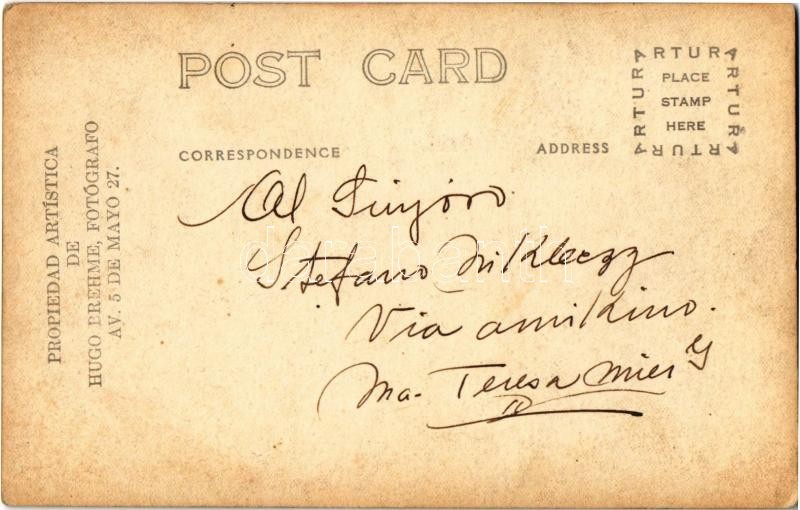 POST CARD
ARTURA
ARTURA
ARTURA
ARTURA
PLACE
STAMP
HERE
CORRESPONDENCE
ADDRESS
PROPIEDAD ARTÍSTICA
DE
HUGO BREHME, FOTÓGRAFO
AV. 5 DE MAYO 27.
Al Sinjoro
Stefano Mikleczz
Via amikino.
Ma. Teresa Mier y
darabanth